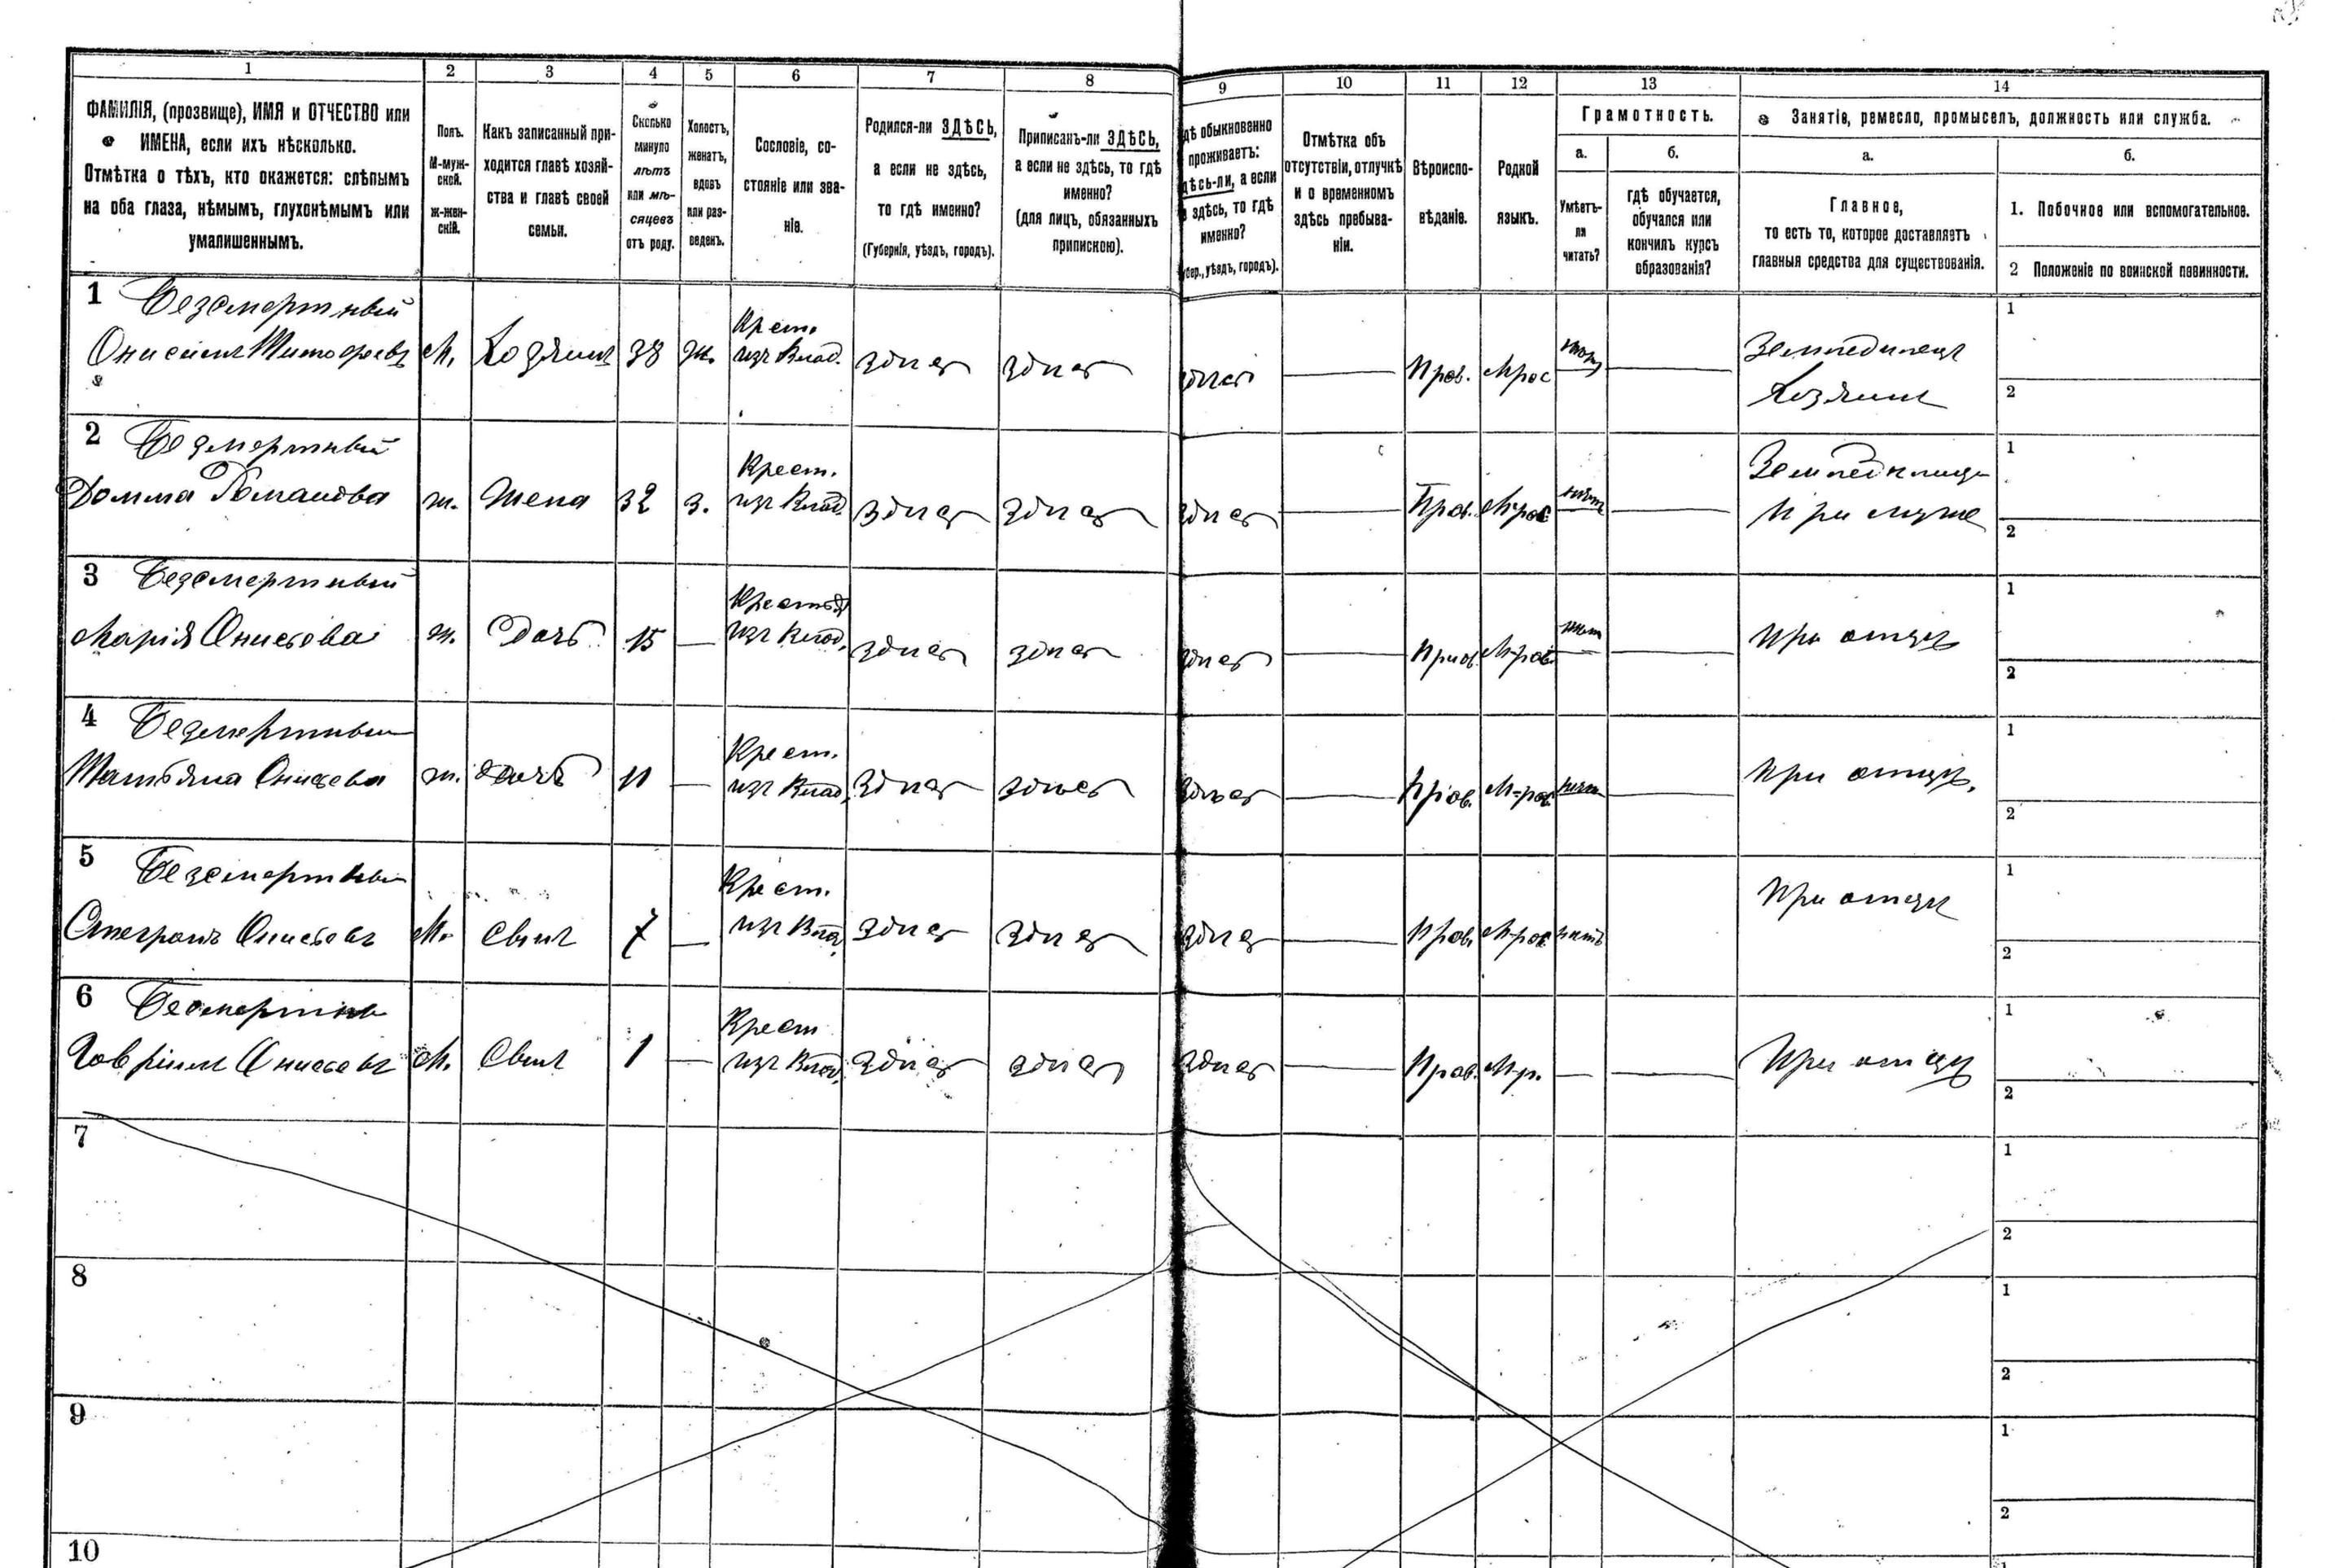 1 2 3 4 5 6 7 8 9 10 11 12 13 14
ФАМИЛІЯ, (прозвище), ИМЯ и ОТЧЕСТВО или
ИМЕНА, если ихъ нѣсколько.
Отмѣтка о тѣхъ, кто окажется: слѣпымъ
на оба глаза, нѣмымъ, глухонѣмымъ или
умалишеннымъ.
Полъ.
М-муж-
ской.
ж-жен-
скій.
Какъ записанный при-
ходится главѣ хозяй-
ства и главѣ своей
семьи.
Сколько
минуло
лѣтъ
или мѣ-
сяцевъ
отъ роду.
Холостъ,
женатъ,
вдовъ
или раз-
веденъ.
Сословіе, со-
стояніе или зва-
ніе.
Родился-ли ЗДѢСЬ,
а если не здѣсь,
то гдѣ именно?
(Губернія, уѣздъ, городъ).
Приписанъ-ли ЗДѢСЬ,
а если не здѣсь, то гдѣ
именно?
(для лицъ, обязанныхъ
припискою).
дѣ обыкновенно
проживаетъ:
дѣсь-ли, а если
здѣсь, то гдѣ
именно?
убер., уѣздъ, городъ).
Отмѣтка объ
отсутствіи, отлучкѣ
и о временномъ
здѣсь пребыва-
ніи.
Вѣроиспо-
вѣданіе.
Родной
языкъ.
Грамотность.
а.
Умѣетъ-
ли
читать?
б.
гдѣ обучается,
обучался или
кончилъ курсъ
образованія?
Занятіе, ремесло, промыселъ, должность или служба.
а.
Главное,
то есть то, которое доставляетъ
главныя средства для существованія.
б.
1. Побочное или вспомогательное.
2 Положеніе по воинской повинности.
1 Безсмертный Крест. 1
Онисимъ Тимофеевъ М. Хозяинъ 38 ж. изъ Влад. здѣсь здѣсь здѣсь Прав. Мрос нѣт Земледелецъ
Хозяинъ 2
2 Безмертный Крест. Земледелица 1
Домна Романова ж. Жена 32 з. изъ Влад. здѣсь здѣсь здѣсь Прав. Мрос нѣт При муже 2
3 Безсмертный 1
Марія Онисьова ж. Дочь 15 — изъ Влад. здѣсь здѣсь здѣсь Мрос нѣт При отцѣ 2
4 Безмертный Крест. 1
Татьяна Онисьева ж. дочь 11 — изъ Влад. здѣсь здѣсь здѣсь Прав. М-рос. нѣт При отцѣ. 2
5 Безсмертный Крест. 1
Стефанъ Онисьевъ М. Сынъ 7 — изъ Влад. здѣсь здѣсь здѣсь Прав. М-рос. нѣтъ При отцѣ 2
6 Крест 1
Гавріилъ Онисьевъ М. Сынъ 1 — изъ Влад. здѣсь здѣсь здѣсь Прав. М-р. — При отцѣ 2
7 1
2
8 1
2
9 1
2
10